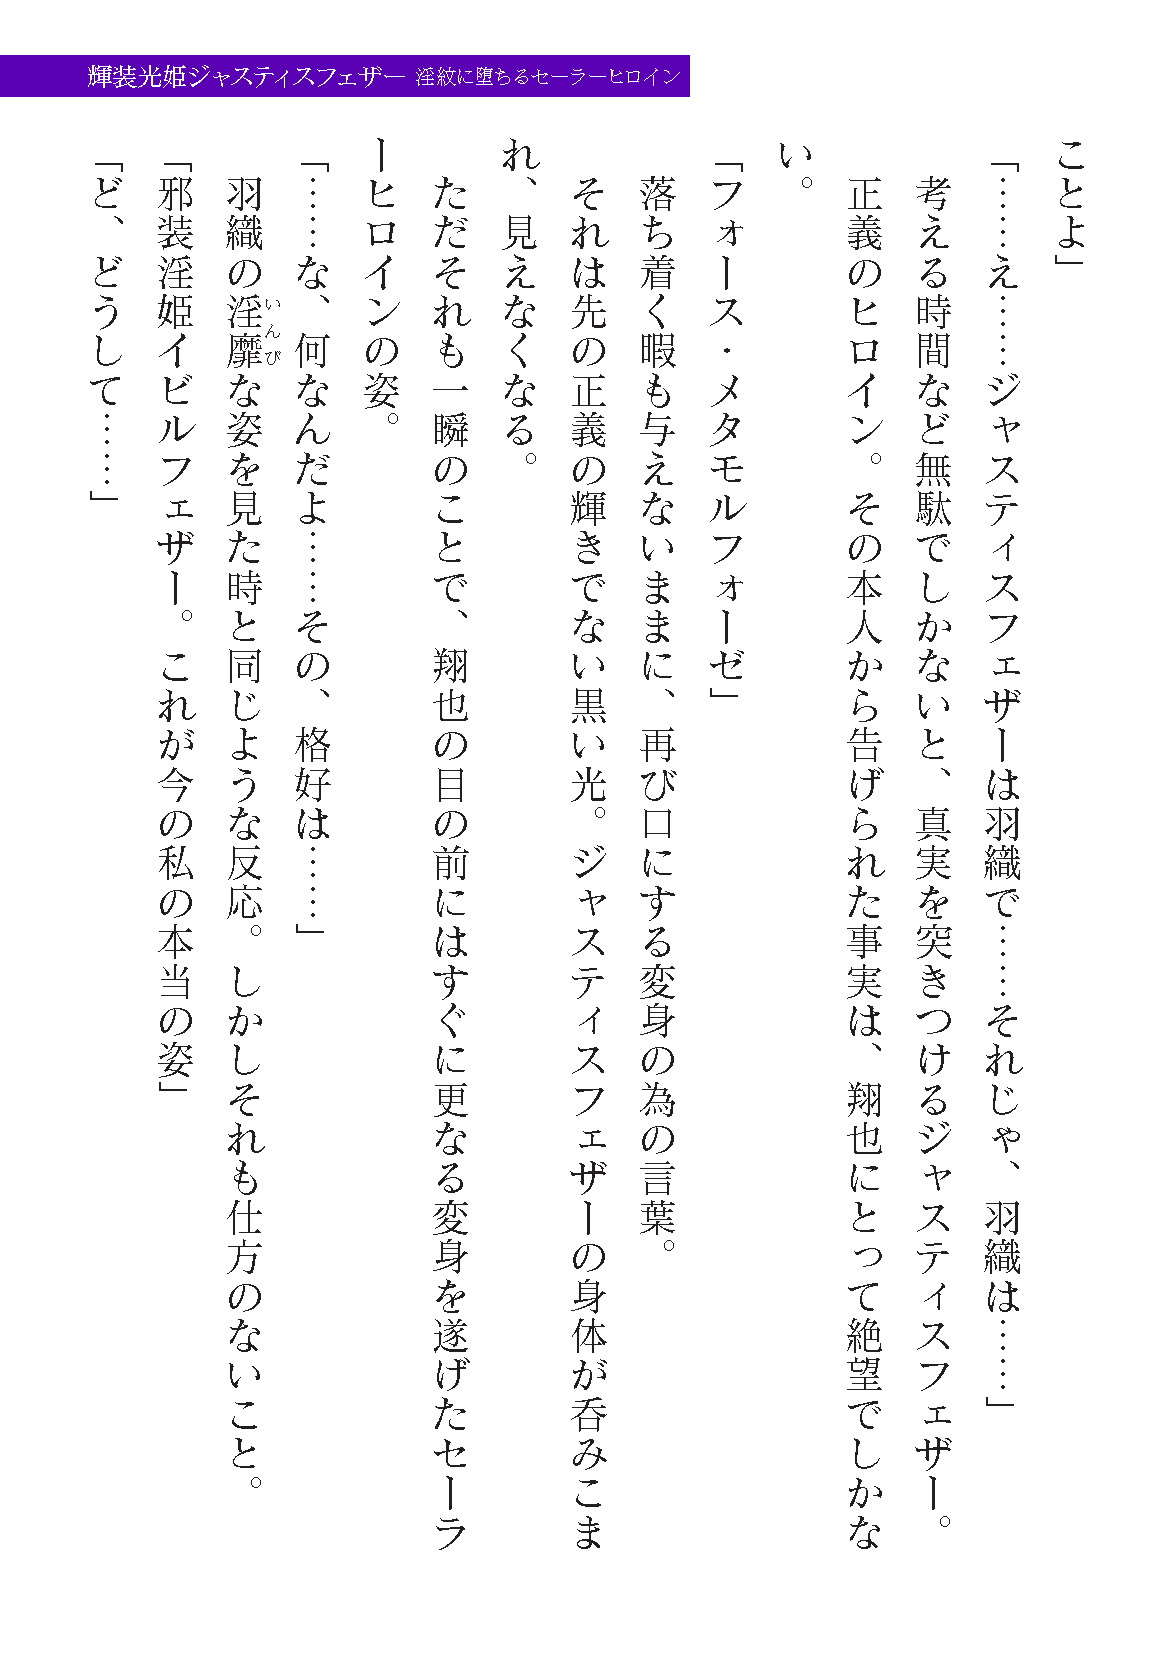 輝装光姫ジャスティスフェザー 淫紋に堕ちるセーラーヒロイン
ことよ」
「……え……ジャスティスフェザーは羽織で……それじゃ、羽織は……」
考える時間など無駄でしかないと、真実を突きつけるジャスティスフェザー。
正義のヒロイン。その本人から告げられた事実は、翔也にとって絶望でしかな
い。
「フォース・メタモルフォーゼ」
落ち着く暇も与えないままに、再び口にする変身の為の言葉。
それは先の正義の輝きでない黒い光。ジャスティスフェザーの身体が呑みこま
れ、見えなくなる。
ただそれも一瞬のことで、翔也の目の前にはすぐに更なる変身を遂げたセーラ
ーヒロインの姿。
「……な、何なんだよ……その、格好は……」
羽織の淫靡いんびな姿を見た時と同じような反応。しかしそれも仕方のないこと。
「邪装淫姫イビルフェザー。これが今の私の本当の姿」
「ど、どうして……」